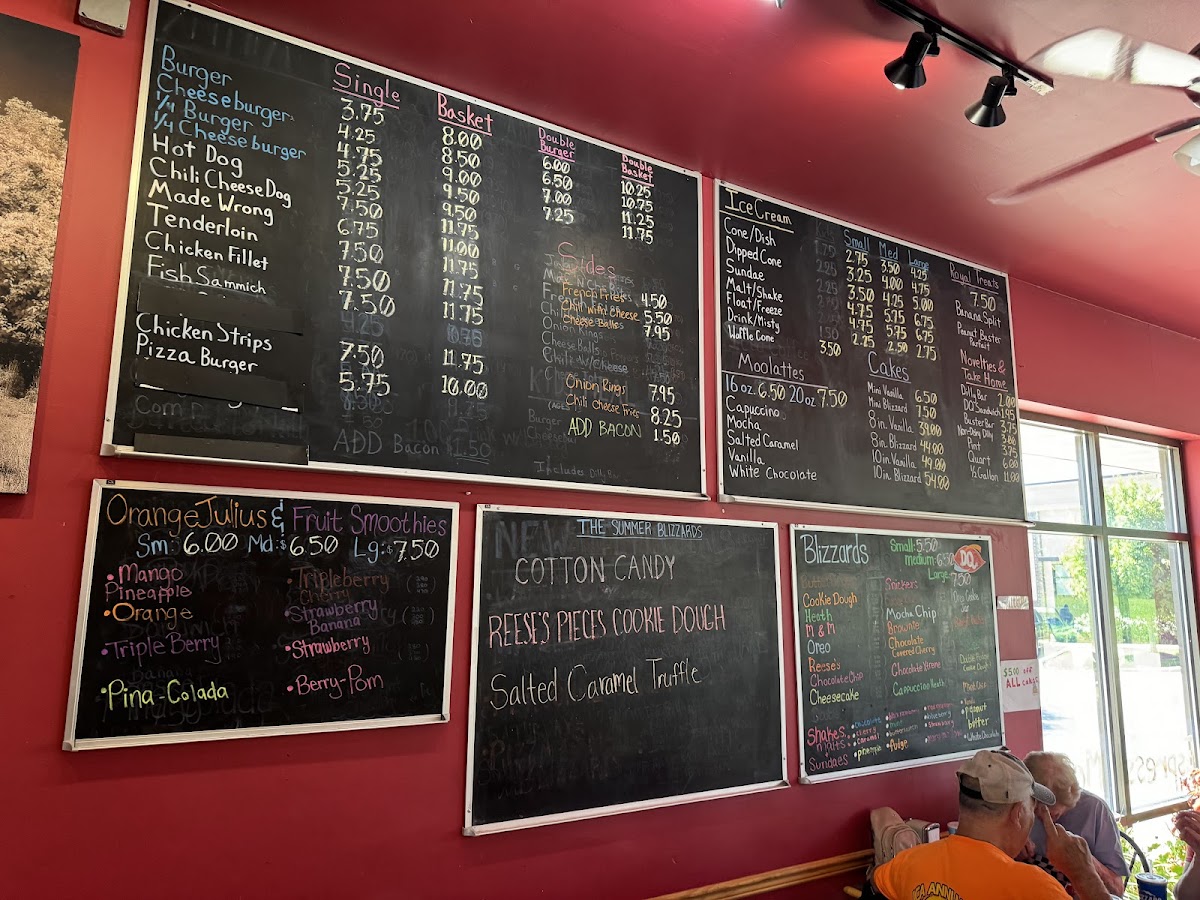 Single Basket Double Burger Double Basket
Burger 3.75 8.00 6.00 10.25
Cheeseburger 4.25 8.50 6.50 10.75
1/4 Burger 4.75 9.00 7.00 11.25
1/4 Cheeseburger 5.25 9.50 7.25 11.75
Hot Dog 5.25 9.50
Chili Cheese Dog 7.50 11.75
Made Wrong 6.75 11.00
Tenderloin 7.50 11.75
Chicken Fillet 7.50 11.75
Fish Sammich 7.50 11.75
Chicken Strips 7.50 11.75
Pizza Burger 5.75 10.00
ADD Bacon $1.50
Sides
French Fries 4.50
Chili with Cheese 5.50
Cheese Balls 7.95
Onion Rings 7.95
Chili Cheese Fries 8.25
ADD BACON 1.50
Ice Cream
Small Med Large
Cone/Dish 2.75 3.50 4.25
Dipped Cone 3.25 4.00 4.75
Sundae 3.50 4.25 5.00
Malt/Shake 4.75 5.75 6.75
Float/Freeze 4.75 5.75 6.75
Drink/Misty 2.25 2.50 2.75
Waffle Cone 3.50
Royal Treats
7.50
Banana Split
Peanut Buster
Parfait
Moolattes
16 oz. 6.50 20 oz 7.50
Capuccino
Mocha
Salted Caramel
Vanilla
White Chocolate
Cakes
Mini Vanilla 6.50
Mini Blizzard 7.50
8in Vanilla 39.00
8in Blizzard 44.00
10in Vanilla 49.00
10in Blizzard 54.00
Novelties &
Take Home
Dilly Bar 2.00
DQ Sandwich 1.95
Buster Bar 3.75
Non-Dairy Dilly
Pint 3.75
Quart 6.00
1/2 Gallon 11.00
Orange Julius & Fruit Smoothies
Sm: 6.00 Md: $6.50 Lg: $7.50
• Mango
Pineapple
• Orange
• Triple Berry
• Pina-Colada
• Tripleberry
Cherry
• Strawberry
Banana
• Strawberry
• Berry-Pom
NEW
THE SUMMER BLIZZARDS
COTTON CANDY
REESE'S PIECES COOKIE DOUGH
Salted Caramel Truffle
Blizzards
Small: 5.50
medium: 6.50
Large: 7.50
DQ
Cookie Dough
Heath
M & M
Oreo
Reese's
Chocolate Chip
Cheesecake
Snickers
Mocha Chip
Brownie
Chocolate
Covered Cherry
Chocolate Xtreme
Cappuccino Heath
Shakes
malts
+
Sundaes
• chocolate
• cherry
• caramel
• pineapple
• fudge
• peanut
butter
• White Chocolate
$5.00 off
ALL cakes